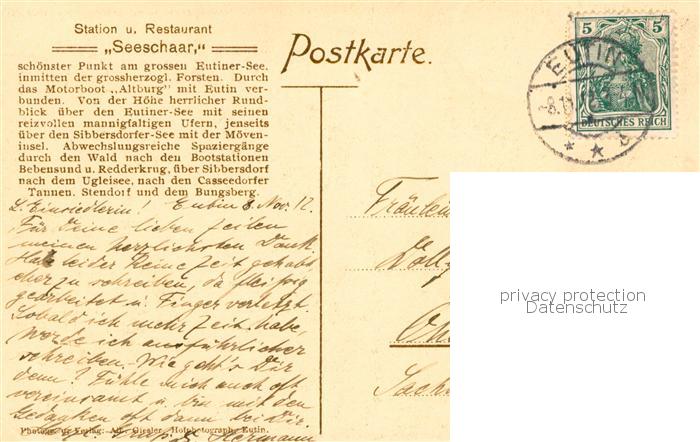 Station u. Restaurant
„Seeschaar,"
schönster Punkt am grossen Eutiner-See,
inmitten der grossherzogl. Forsten. Durch
das Motorboot „Altburg" mit Eutin ver-
bunden. Von der Höhe herrlicher Rund-
blick über den Eutiner-See mit seinen
reizvollen mannigfaltigen Ufern, jenseits
über den Sibbersdorfer-See mit der Möven-
insel. Abwechslungsreiche Spaziergänge
durch den Wald nach den Bootstationen
Bebensund u. Redderkrug, über Sibbersdorf
nach dem Ugleisee, nach den Casseedorfer
Tannen. Stendorf und dem Bungsberg.
L. Einsiedlerin! Eutin 8 Nov. 12.
Für Deine lieben Zeilen
meinen herzlichsten Dank
Habe leider keine Zeit gehabt,
eher zu schreiben, da fleißig
gearbeitet u. Finger verletzt.
Sobald ich mehr Zeit habe,
werde ich ausführlicher
schreiben. Wie geht's Dir
denn? Fühle mich auch oft
vereinsamt u. bin mit den
Gedanken oft dann bei Dir.
Hermann
Photogr. u. Verlag: Ad. Giesler, Hofphotograph, Eutin.
Postkarte.
5 5
DEUTSCHES REICH
EUTIN
Fräulein
privacy protection
Datenschutz